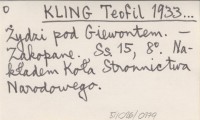 KLING Teofil 1933...
Żydzi pod Giewontem. —
Zakopane. Ss 15, 8°. Na-
kładem Koła Stronnictwa
Narodowego.